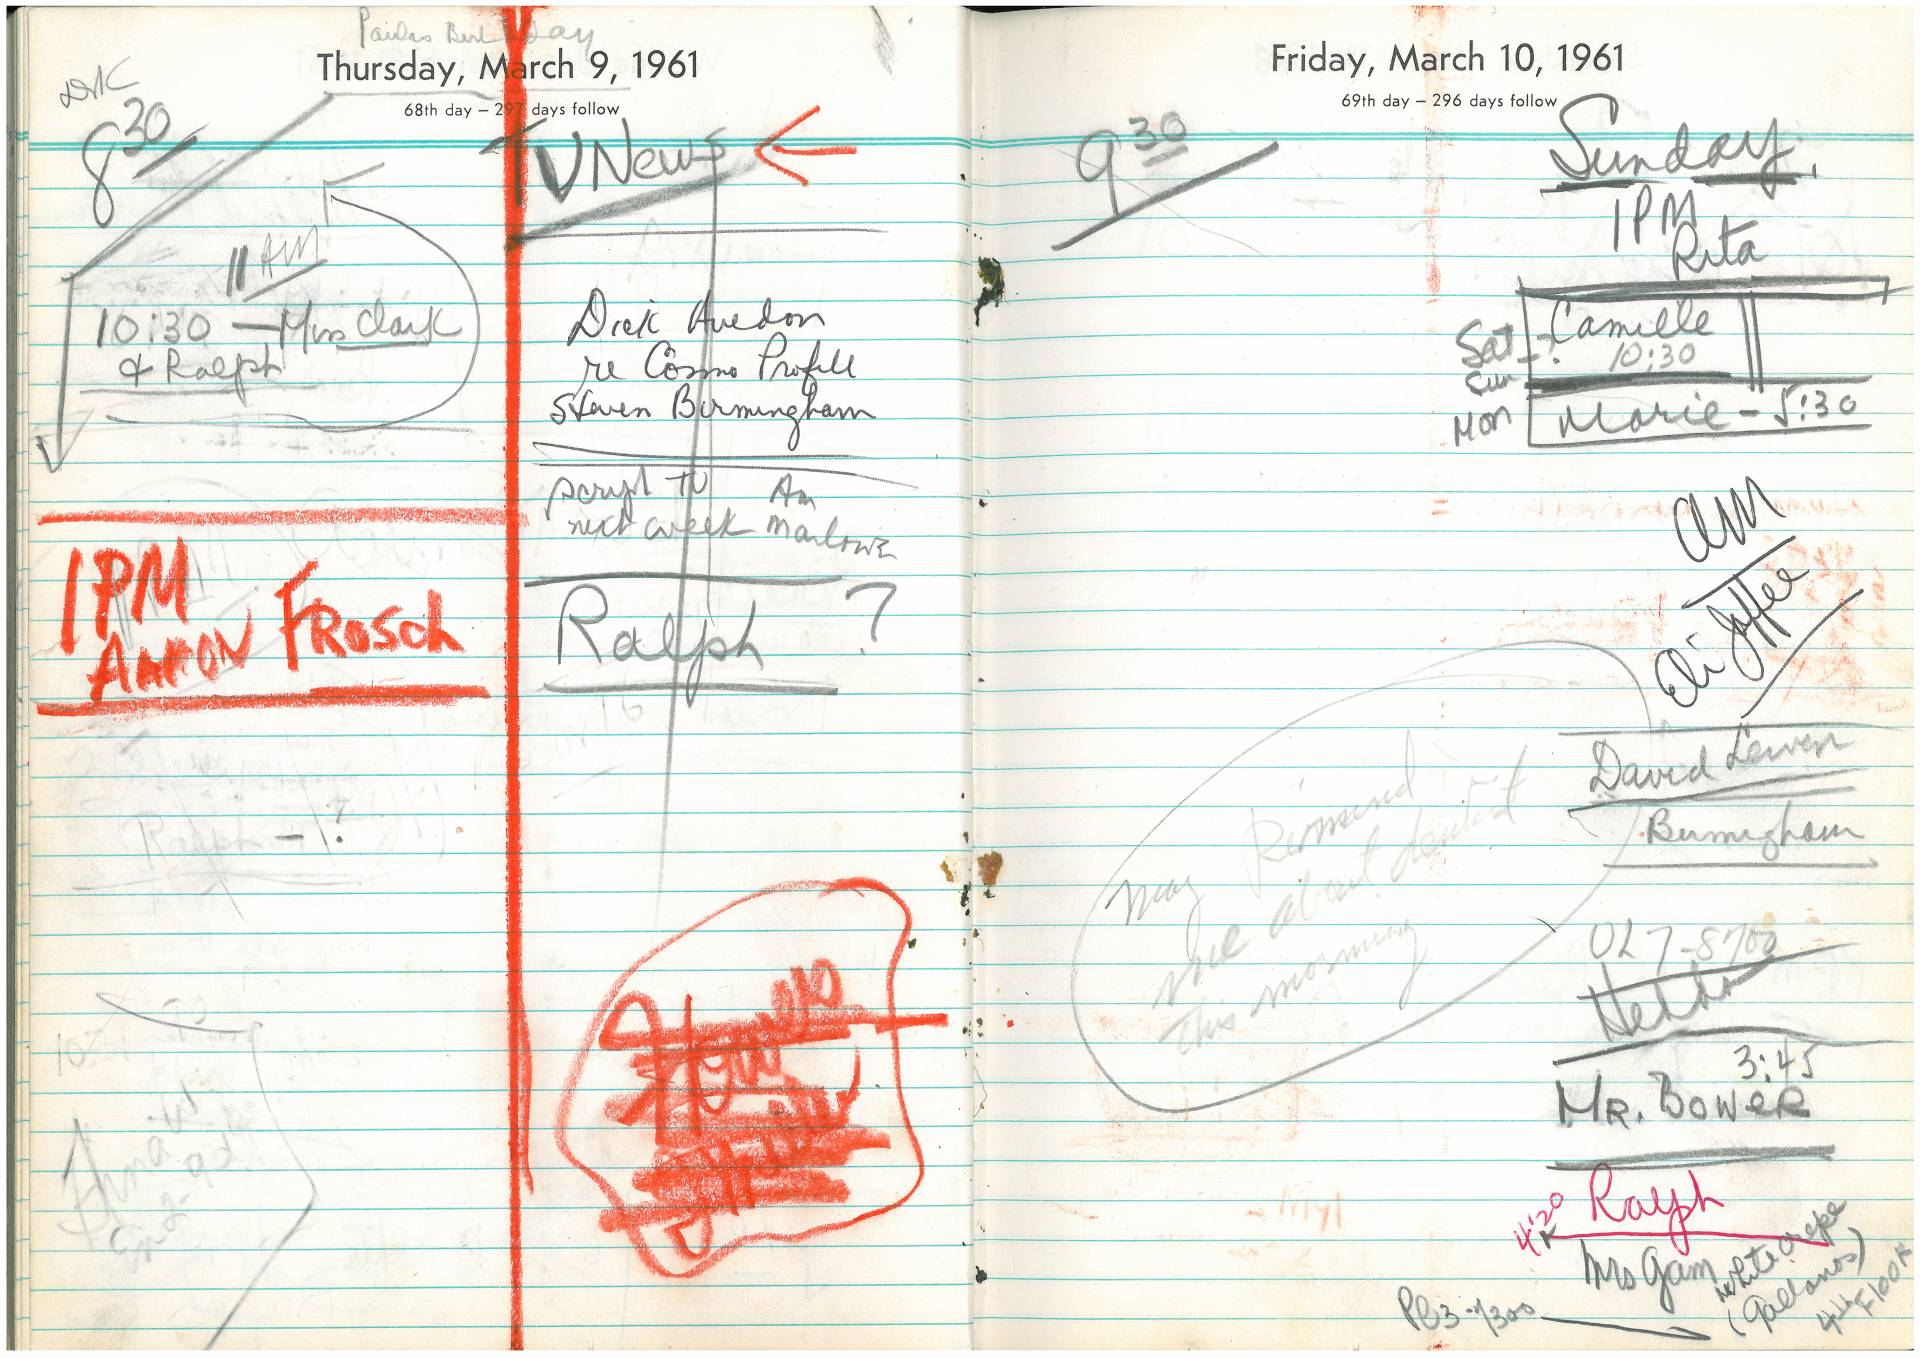 Paulas Birthday
Thursday, March 9, 1961
68th day – 297 days follow
8 30
TV News
11 AM
10:30 — Mrs Clark
& Ralph
Dick Avedon
re Cosmo Profile
Steven Birmingham
script TV Am
next week Marlowe
1PM
AARON FROSCH
Ralph ?
Ralph – ?
Friday, March 10, 1961
69th day – 296 days follow
9 30
Sunday
1PM
Rita
Sat – ? Camille
Sun 10:30
Mon Marie – 5:30
am
Eli Joffe
David Lewen
Birmingham
May Remind
me about dentist
this morning
OL7-8700
Hedda
3:45
MR. BOWER
4:20 Ralph
Mrs Gam
white crepe
(Galanos)
4th Floor
PL3-7300